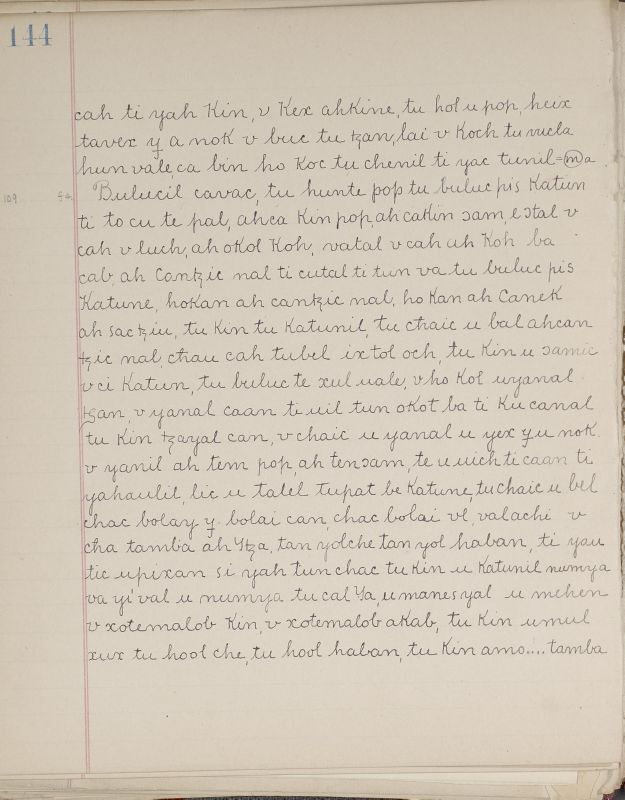 144
cah ti yah Kin, v Kex ahKine, tu hol u pop, heix
tavex y a nok v buc tu ꜩan, lai v Koch tu vucla
hun vale, ca bin ho Koc tu chenil ti yac tunil = m a
109 54. Bulucil cavac, tu hunte pop tu buluc pis Katun
ti to cu te pal, ahca Kin pop, ah caKin ɔam, e ɔtal v
cah v luch, ah oKol Koh, vatal v cah ah Koh ba
cab, ah Canꜩic nal ti cutal ti tun va tu buluc pis
Katune, hoKan ah canꜩic nal, ho Kan ah CaneK
ah sacꜩiu, tu Kin tu Katunil, tu chaic u bal ahcan
ꜩic nal, chau cah tubel ixtol och, tu Kin u ɔamic
v ci Katun, tu buluc te xul uale, v ho Kol uyanal
ꜩan, v yanal caan ti uil tun oKot ba ti Ku canal
tu Kin ꜩayal can, v chaic u yanal u yex y u noK
v yanil ah tem pop, ah tenɔam, te u uich ti caan ti
yahaulil, lic u talel tupat be Katune, tu chaic u bel
chac bolay y. bolai can, chac bolai vl, valachi v
cha tamba ah Ytza, tan yolche tan yol haban, ti yau
tic upixan si yah tun chac tu Kin u Katunil numya
va yi val u numya tu cal Ya, u manes yal u mehen
v xotemalob Kin, v xotemalob aKab, tu Kin umul
xux tu hool che, tu hool haban, tu Kin amo.... tamba